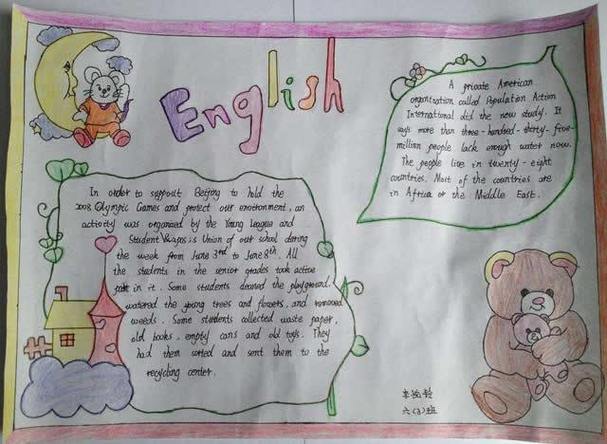 English
A private American
organization called Population Action
International did the new study. It
says more than three-hundred-thirty-five-
million people lack enough water now.
The people live in twenty-eight
countries. Most of the countries are
in Africa or the Middle East.
In order to support Beijing to hold the
2008 Olympic Games and protect our environment, an
activity was organized by the Young League and
Student Union of our school during
the week from June 3rd to June 8th. All
the students in the senior grades took active
in it. Some students cleaned the playground,
watered the young trees and flowers, and removed
weeds. Some students collected waste paper,
old books, empty cans and old toys. They
had them sorted and sent them to the
recycling center.
六(3)班